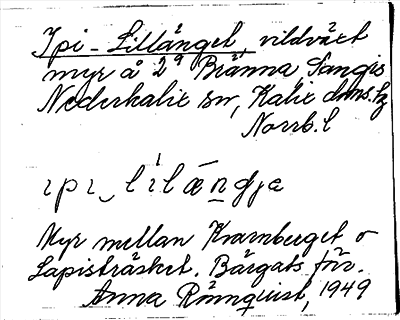 Ipi-Lillånget, vildväxt
myr å 2⁹ Bränna, Sangis
Nederkalix sn, Kalix dms. tg
Norrb. l
ıpı‿lìlåṉgja
Myr mellan Kvarnberget o
Lapisträsket. Bärgats förr.
Anna Rönnqvist, 1949